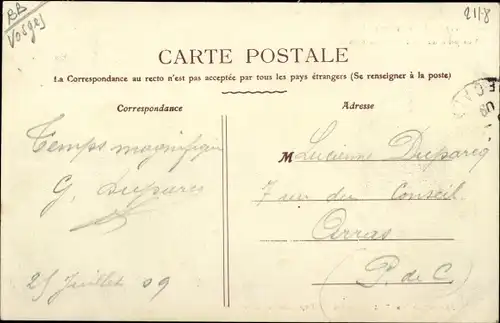 BB
Vosges
2118
CARTE POSTALE
La Correspondance au recto n'est pas acceptée par tous les pays étrangers (Se renseigner à la poste)
Correspondance
Adresse
Temps magnifique
G. Duparcq
25 Juillet 09
M Lucienne Duparcq
7 rue du Conseil
Arras
P. de C.
09